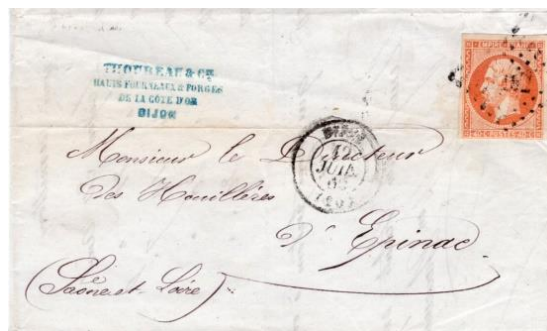 THOUREAU & Cie
HAUTS FOURNEAUX & FORGES
DE LA CÔTE D'OR
DIJON
EMPIRE FRANC
40 C. POSTES 40 C.
DIJON
12
JUIL.
(20)
Monsieur le Directeur
des Houillères
d'Epinac
(Saône et Loire)